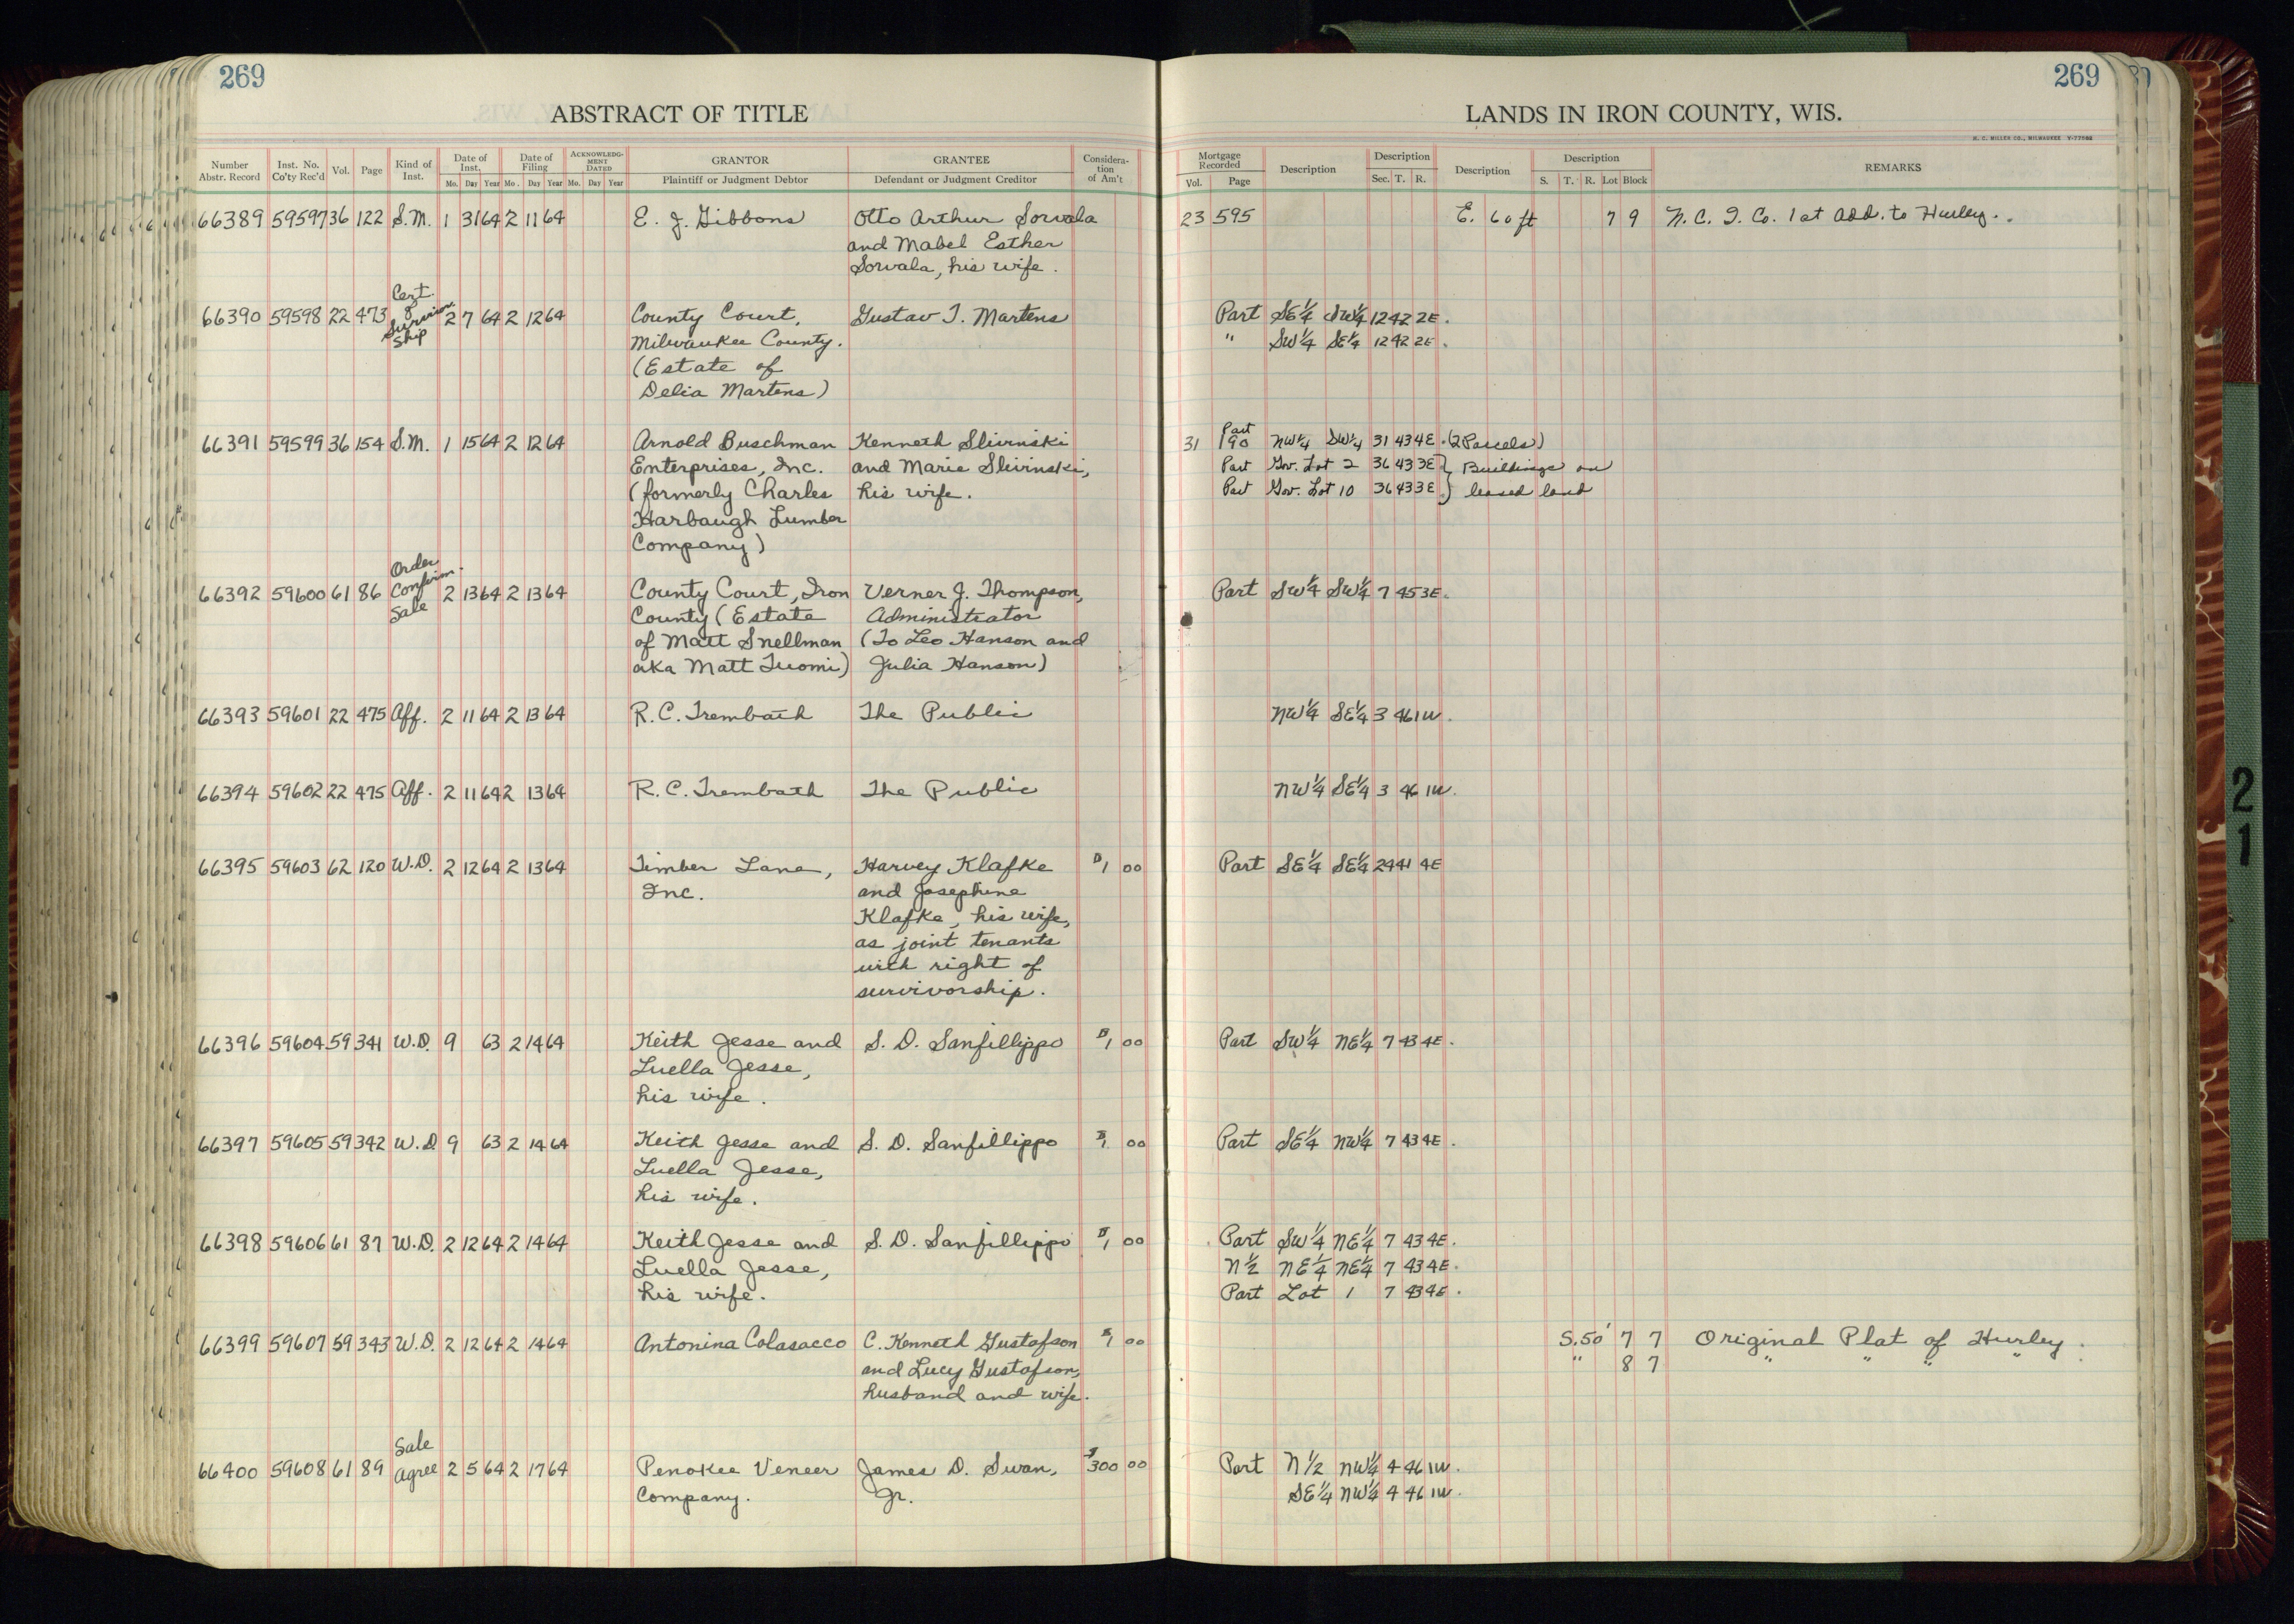 269
269
ABSTRACT OF TITLE
LANDS IN IRON COUNTY, WIS.
H. C. MILLER CO., MILWAUKEE
Number Abstr. Record | Inst. No. Co'ty Rec'd | Vol. | Page | Kind of Inst. | Date of Inst. Mo. Day Year | Date of Filing Mo. Day Year | ACKNOWLEDGMENT DATED Mo. Day Year | GRANTOR Plaintiff or Judgment Debtor | GRANTEE Defendant or Judgment Creditor | Consideration of Am't | Mortgage Recorded Vol. Page | Description | Description Sec. T. R. | Description | Description S. T. R. Lot Block | REMARKS
66389 59597 36 122 S.M. 1 31 64 2 11 64 E. J. Gibbons Otto Arthur Sorvala 23 595 E. 60 ft 7 9 N. C. I. Co. 1st Add. to Hurley.
and Mabel Esther
Sorvala, his wife.
Cert.
of
66390 59598 22 473 Survivor 2 7 64 2 12 64 County Court, Gustav T. Martens Part SE¼ SW¼ 12 42 2E.
ship Milwaukee County. " SW¼ SE¼ 12 42 2E.
(Estate of
Delia Martens)
Part
66391 59599 36 154 S.M. 1 15 64 2 12 64 Arnold Buschman Kenneth Slivinski 31 190 NW¼ SW¼ 31 43 4E. (2 Parcels)
Enterprises, Inc. and Marie Slivinski, Part Gov. Lot 2 36 43 3E } Buildings on
(formerly Charles his wife. Part Gov. Lot 10 36 43 3E } leased land
Harbaugh Lumber
Company)
Order
66392 59600 61 86 Confirm. 2 13 64 2 13 64 County Court, Iron Verner J. Thompson, Part SW¼ SW¼ 7 45 3E.
Sale County (Estate Administrator
of Matt Snellman (To Leo Hanson and
aka Matt Tuomi) Julia Hanson)
66393 59601 22 475 Aff. 2 11 64 2 13 64 R. C. Trembath The Public NW¼ SE¼ 3 46 1W.
66394 59602 22 475 Aff. 2 11 64 2 13 64 R. C. Trembath The Public NW¼ SE¼ 3 46 1W.
66395 59603 62 120 W.D. 2 12 64 2 13 64 Timber Lane, Harvey Klafke $1 00 Part SE¼ SE¼ 24 41 4E
Inc. and Josephine
Klafke, his wife,
as joint tenants
with right of
survivorship.
66396 59604 59 341 W.D. 9 63 2 14 64 Keith Jesse and S. D. Sanfillippo $1 00 Part SW¼ NE¼ 7 43 4E.
Luella Jesse,
his wife.
66397 59605 59 342 W.D 9 63 2 14 64 Keith Jesse and S. D. Sanfillippo $1 00 Part SE¼ NW¼ 7 43 4E.
Luella Jesse,
his wife.
66398 59606 61 87 W.D. 2 12 64 2 14 64 Keith Jesse and S. D. Sanfillippo $1 00 Part SW¼ NE¼ 7 43 4E.
Luella Jesse, N½ NE¼ NE¼ 7 43 4E.
his wife. Part Lot 1 7 43 4E.
66399 59607 59 343 W.D. 2 12 64 2 14 64 Antonina Colasacco C. Kenneth Gustafson $1 00 S. 50' 7 7 Original Plat of Hurley.
and Lucy Gustafson, " 8 7 " " " "
husband and wife.
Sale
66400 59608 61 89 Agree 2 5 64 2 17 64 Penokee Veneer James D. Swan, $300 00 Part N½ NW¼ 4 46 1W.
Company. Jr. SE¼ NW¼ 4 46 1W.
21